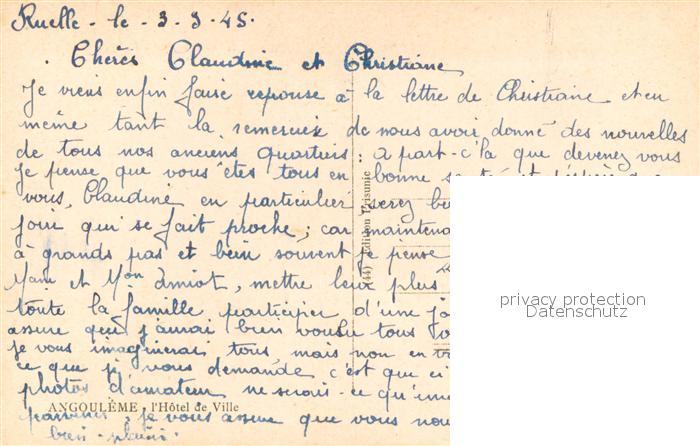 Ruelle - le - 3 - 3 - 45.
Chères Claudine et Christiane
Je viens enfin faire reponse à la lettre de Christiane et en
même tant la remerciez de nous avoir donné des nouvelles
de tous nos anciens quartiers; à part - c'la que devenez vous
je pense que vous êtes tous en bonne
vous, Claudine en particulier serez
jour qui se fait proche; car maintena
à grands pas et bein souvent je pense
et Mon Amiot, mettre leur plus
toute la famille participer d'une
assure que j'aurai bien voulu tous
je vous imaginerai tous, mais non en
ce que je vous demande c'est que
photos d'amateur ne serais-ce qu'une
parvenir, je vous assure que vous
bien plaisir.
(44) Edition Prisunic
ANGOULÊME - l'Hôtel de Ville
privacy protection
Datenschutz